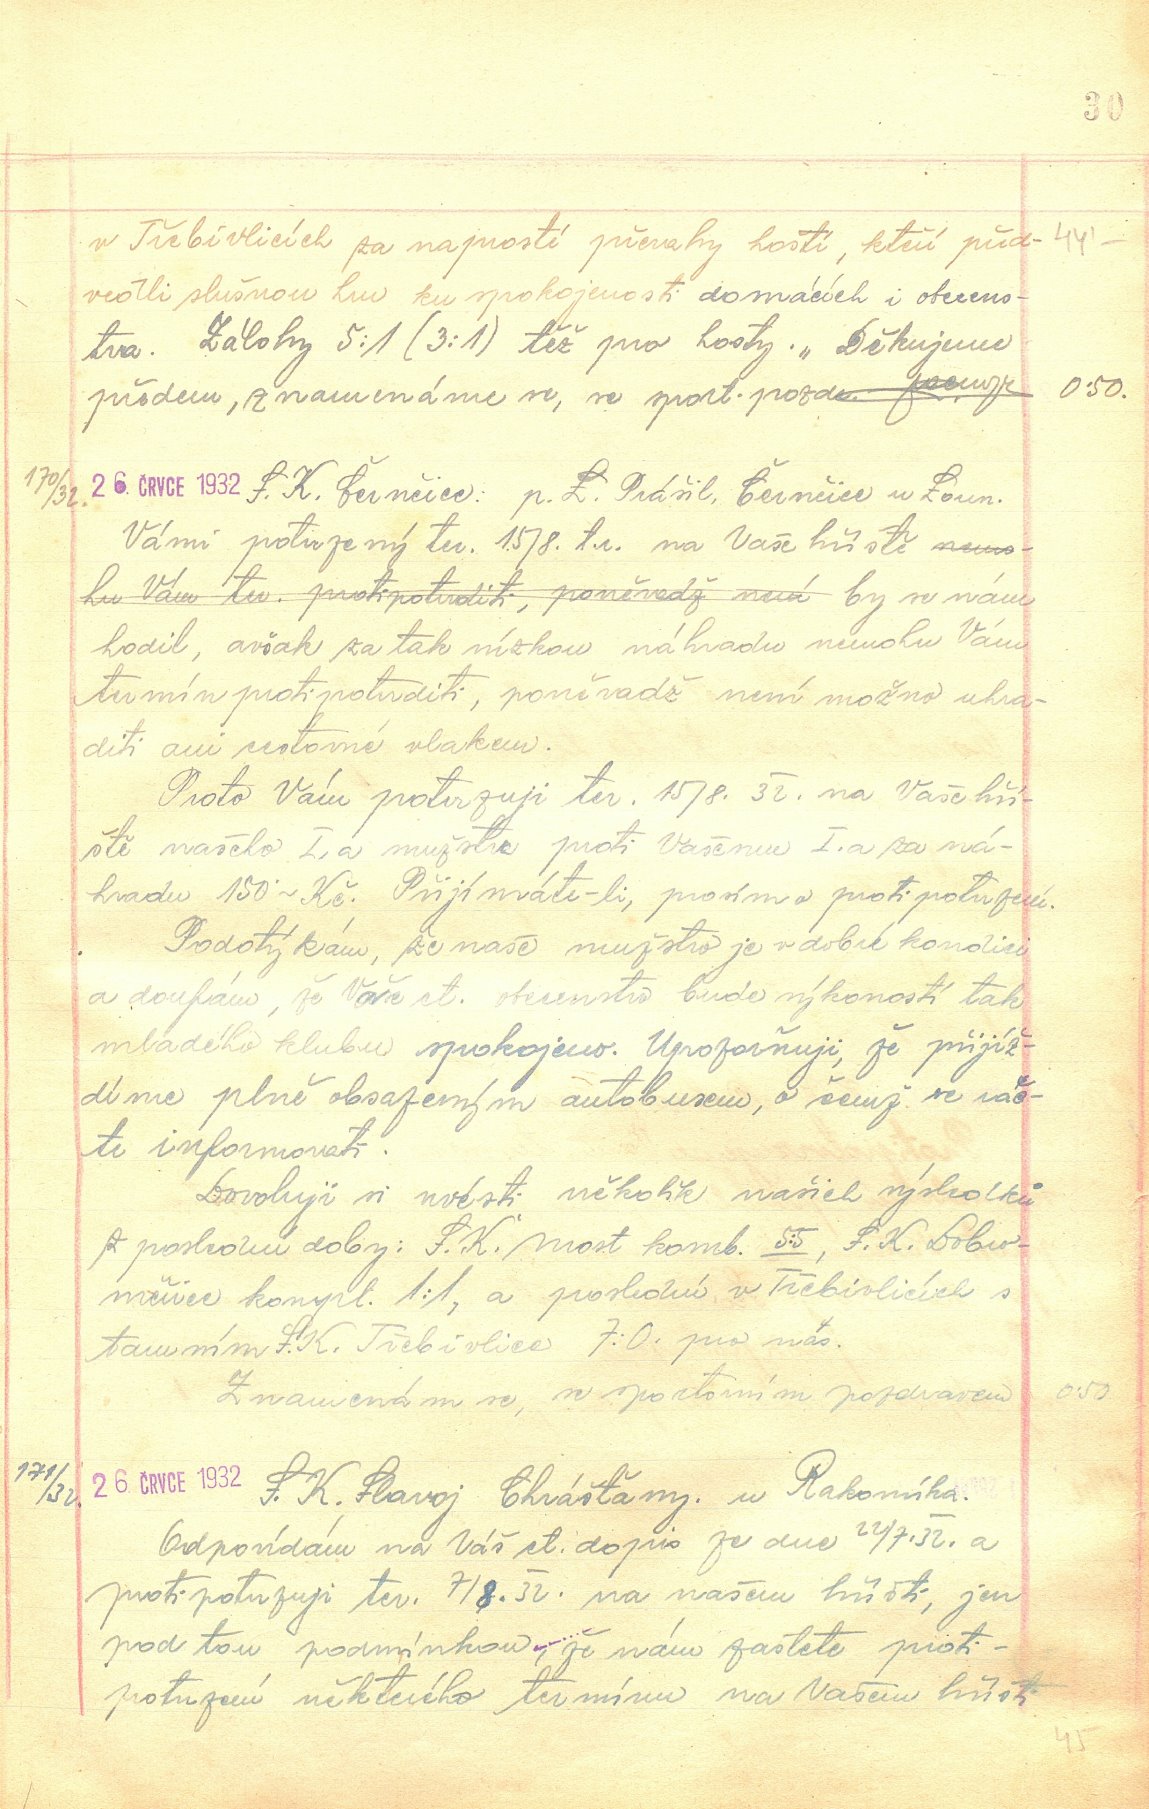 30
v Třebívlicích za naprosté převahy hostí, kteří před- 44'—
vedli slušnou hru ku spokojenosti domácích i obecens-
tva. Zálohy 5:1 (3:1) též pro hosty." Děkujeme
předem, znamenáme se, se sport. pozd. 0·50.
170/32. 26. ČRVCE 1932 S. K. Černčice: p. L. Prášil, Černčice u Loun.
Vámi potvrzený ter. 15/8. t.r. na Vaše hřiště nemo-
hu Vám ter. protipotvrditi, poněvadž není by se nám
hodil, avšak za tak nízkou náhradu nemohu Vám
termín protipotvrditi, poněvadž není možno uhra-
diti ani cestovné vlakem.
Proto Vám potvrzuji ter. 15/8. 32. na Vaše hři-
ště našeho I.a mužstva proti Vašemu I.a za ná-
hradu 150·~ Kč. Přijímáte-li, prosím o protipotvrzení.
Podotýkám, že naše mužstvo je v dobré kondici
a doufám, že Vaše ct. obecenstvo bude výkoností tak
mladého klubu spokojeno. Upozorňuji, že přijíž-
díme plně obsazeným autobusem, o čemž se ráč-
te informovati.
Dovoluji si uvésti několik našich výsledků
z poslední doby: S.K. Most komb. 5:5, S.K. Dobro-
měřice kompl. 1:1, a poslední v Třebívlicích s
tamním S.K. Třebívlice 7:0. pro nás.
Znamenám se, se sportovním pozdravem 0·50
171/32. 26 ČRVCE 1932 S. K. Slavoj Chrášťany. u Rakovníka.
Odpovídám na Váš ct. dopis ze dne 22/7.32. a
protipotvrzuji ter. 7/8.32. na našem hřišti, jen
pod tou podmínkou, že nám zašlete proti-
potvrzení některého termínu na Vašem hřišti
45